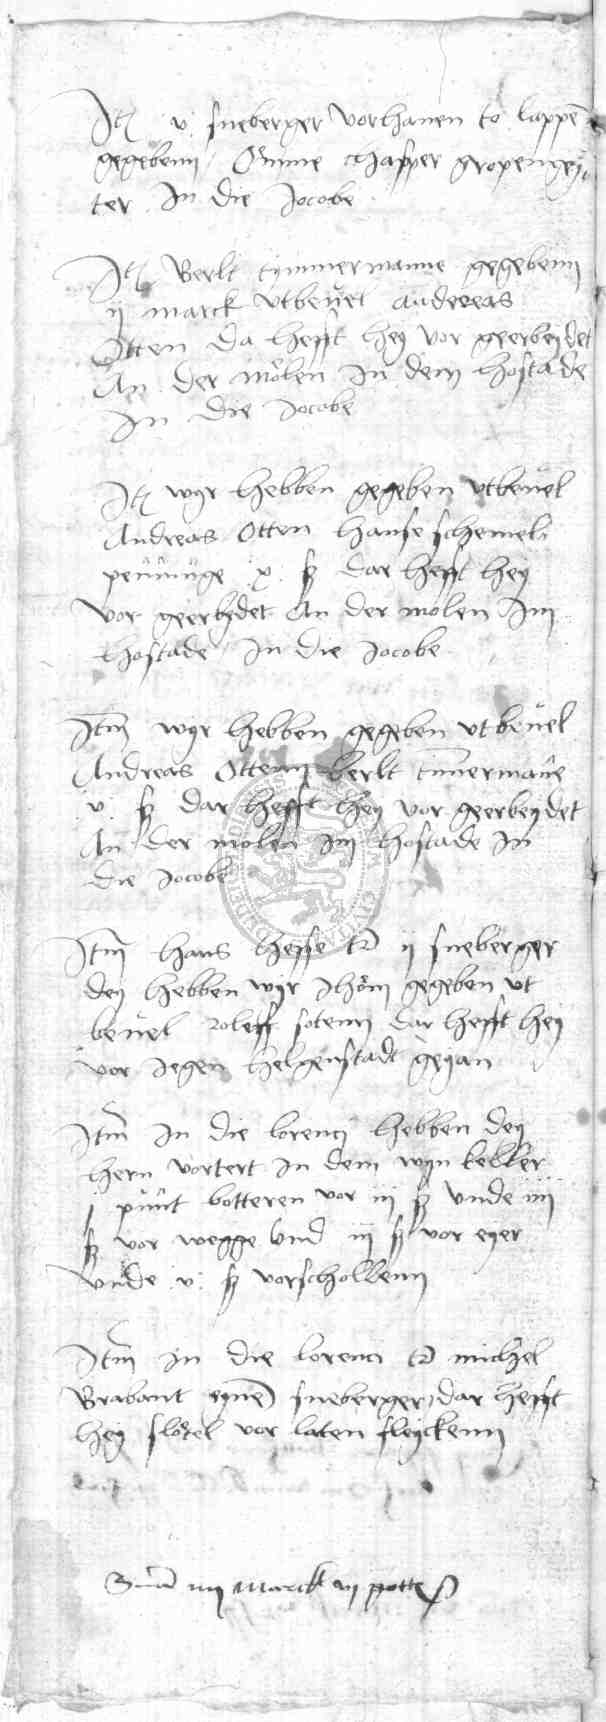 Itz v sneberger vorhanen to lappen
gegebenn Omme chasper gropengey
ter In die Jocobe
Itz Berlt tymmermanne gegebenn
ij marck utbevel andreas
Otten da hefft hey vor geerbeydet
An der molen In dem hostade
In die Jocobe
Itz wyr hebben gegeben utbevel
Andreas Otten hanse schemel
penninge x ß dar hefft hey
vor geerbydet An der molen Im
hostade In die Jocobe
Itm wyr hebben gegeben utbevel
Andreas Ottenn berlt timermane
v ß dar hefft hey vor geerbeydet
An der molen im hostade In
die Jocobe
Itm hans hesse ij sneberger
dey hebben wyr Ihom gegeben ut
bevel roleff sotenn dar hefft hey
vor Jegen helgenstadt geyan
Itm in die lorenci hebben dey
hern vortert in dem wyn keller
j punt botteren vor iij ß unde iiij
ß vor wegge und iij ß vor eyer
unde v ß vorschollenn
Itm in die lorenci michel
Brabant eynen sneberger dar hefft
hey slotel vor laten fleyckenn
Suma iiij Marck vj potte